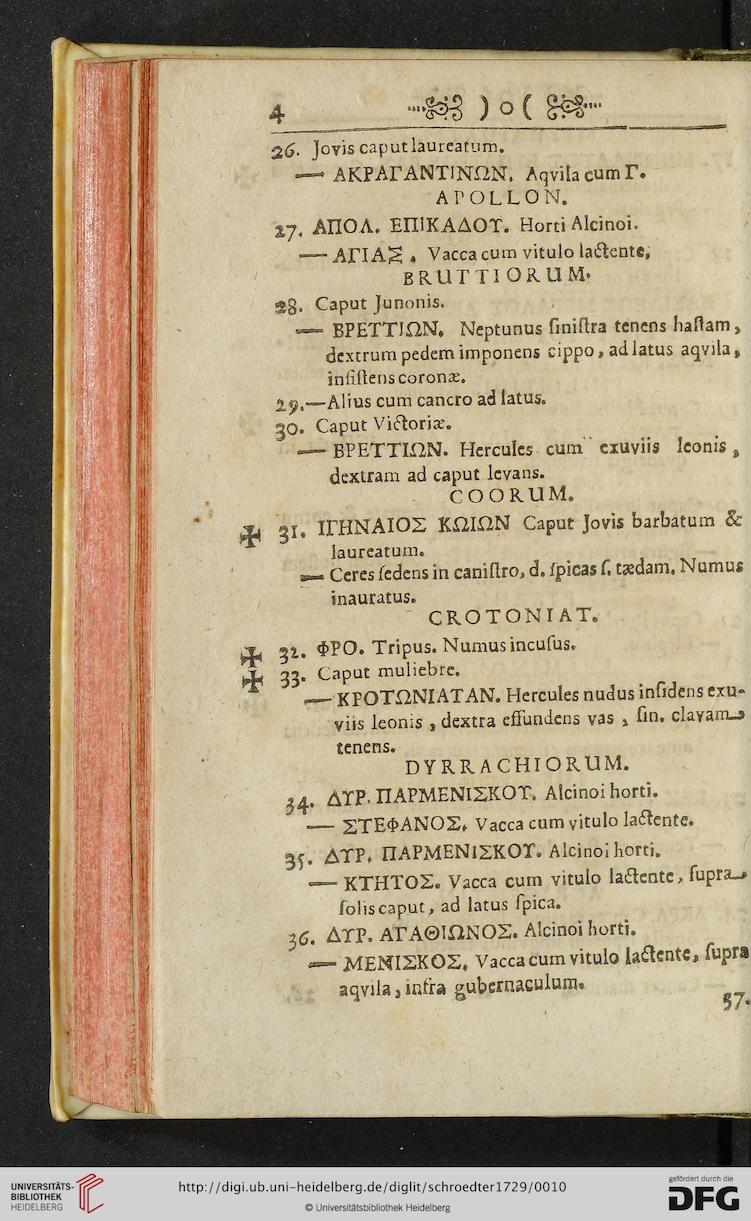 4 )o(
26. Jovis caput laureatum.
— ΑΚΡΑΓΑΝΤΙΝΩΝ. Aqvila cum Γ.
APOLLON.
27. ΑΠΟΛ. ΕΠΙΚΑΔΟΥ. Horti Alcinoi.
— ΑΓΙΑΣ. Vacca cum vitulo lactente,
BRUTTIORUM.
28. Caput Junonis.
— ΒΡΕΤΤΙΩΝ. Neptunus siniſtra tenens haſtam,
dextrum pedem imponens cippo, ad latus aqvila,
inſiſtens coronæ.
29.—Alius cum cancro ad latus.
30. Caput Victoriæ.
— ΒΡΕΤΤΙΩΝ. Hercules cum exuviis leonis,
dextram ad caput levans.
COORUM.
✠ 31. ΙΓΗΝΑΙΟΣ ΚΩΙΩΝ Caput Jovis barbatum &
laureatum.
— Ceres ſedens in caniſtro, d. ſpicas ſ. tædam. Numus
inauratus.
CROTONIAT.
✠ 32. ΦΡΟ. Tripus. Numus incuſus.
✠ 33. Caput muliebre.
— ΚΡΟΤΩΝΙΑΤΑΝ. Hercules nudus inſidens exu-
viis leonis, dextra effundens vas, ſin. clavam
tenens.
DYRRACHIORUM.
34. ΔΥΡ. ΠΑΡΜΕΝΙΣΚΟΥ. Alcinoi horti.
— ΣΤΕΦΑΝΟΣ. Vacca cum vitulo lactente.
35. ΔΥΡ. ΠΑΡΜΕΝΙΣΚΟΥ. Alcinoi horti.
— ΚΤΗΤΟΣ. Vacca cum vitulo lactente, ſupra
ſolis caput, ad latus ſpica.
36. ΔΥΡ. ΑΓΑΘΙΩΝΟΣ. Alcinoi horti.
— ΜΕΝΙΣΚΟΣ. Vacca cum vitulo lactente, ſupra
aqvila, infra gubernaculum.
37.
UNIVERSITÄTS-
BIBLIOTHEK
HEIDELBERG
http://digi.ub.uni-heidelberg.de/diglit/schroedter1729/0010
© Universitätsbibliothek Heidelberg
gefördert durch die
DFG